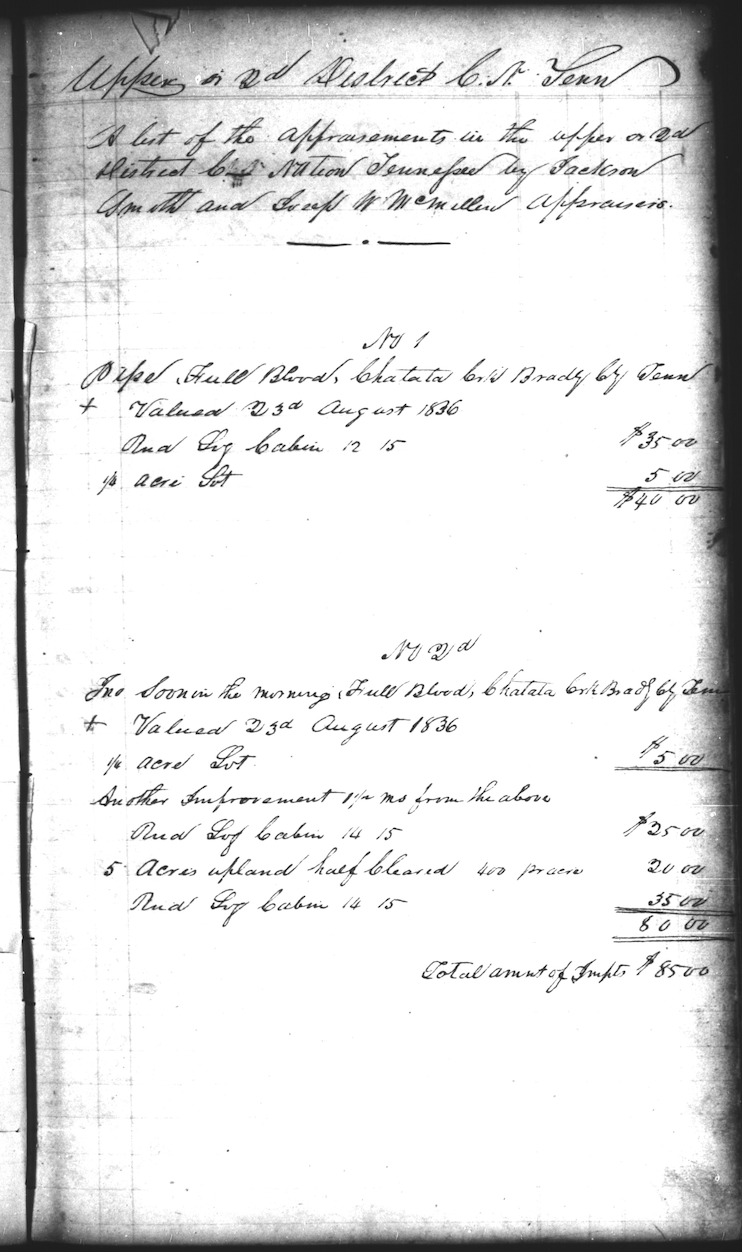 Upper or 2d District C. N. Tenn
A list of the appraisements in the upper or 2d
District C. Nation Tennessee by Jackson
Smith and Joseph W McMillen Appraisers.
No 1
Full Blood, Chatata Crk Bradly Cty Tenn
+ Valued 23d August 1836
Rnd Log Cabin 12 15 $35 00
1/4 acre Lot 5 00
$40 00
No 2d
Jno Soon in the morning, Full Blood, Chatata Crk Bradly Cty Tenn
+ Valued 23d August 1836
1/4 acre Lot $5 00
Another Improvement 1 1/2 ms from the above
Rnd Log Cabin 14 15 $25 00
5 Acres upland half Cleared 400 pr acre 20 00
Rnd Log Cabin 14 15 35 00
80 00
Total amnt of Impts $85 00